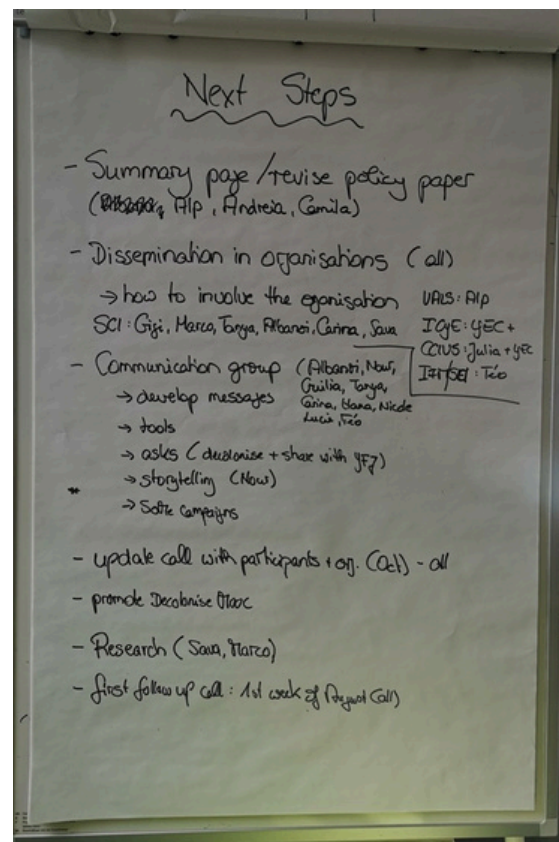 Next Steps
- Summary page/revise policy paper
(Alp, Andreia, Camila)
- Dissemination in organisations (all)
→ how to involve the organisation
SCI: Gigi, Marco, Tanya, Albanoi, Carina, Sava
VALS: Alp
ICYE: YEC+
CCIVS: Julia + YEC
: Téo
- Communication group (Albanoi, Nour,
Guilia, Tanya,
Carina, Hana, Nicole
Lucie, Téo
→ develop messages
→ tools
→ asks (decolonise + share with YFJ)
→ storytelling (Now)
* → campaigns
- update call with participants + org. (Oct) - all
- promote Decolonise Mooc
- Research (Sava, Marco)
- first follow up call: 1st week of August (all)